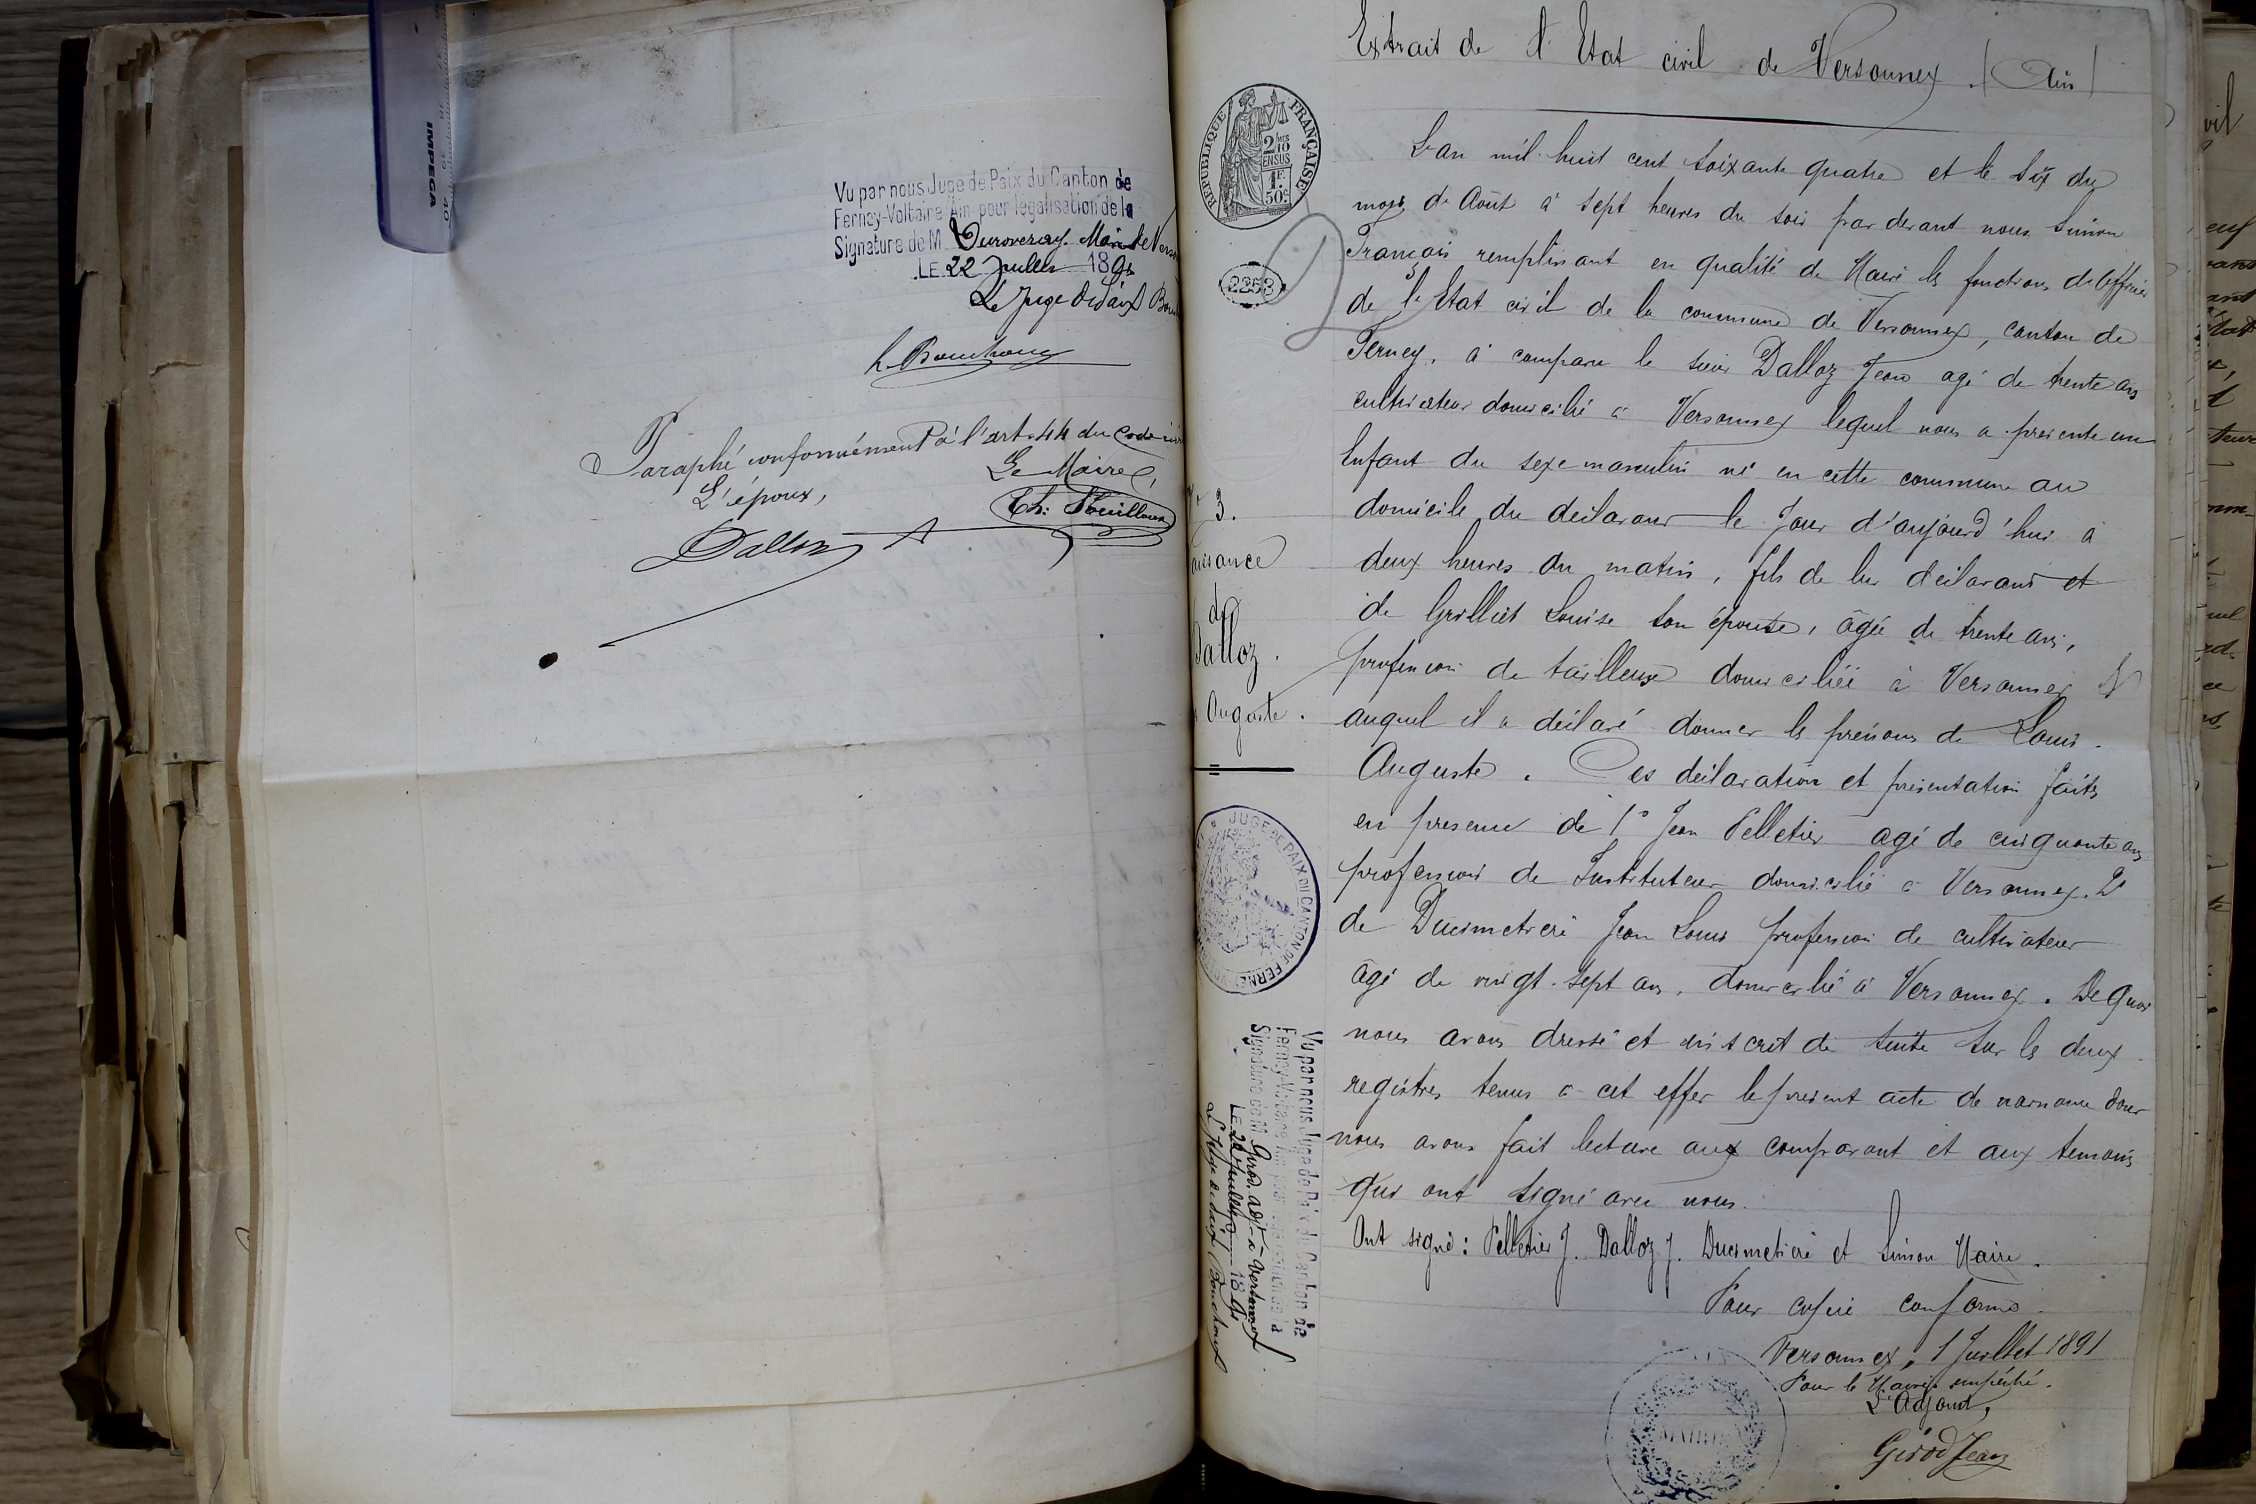 IMPEGA
Vu par nous Juge de Paix du Canton de
Ferney-Voltaire Ain pour légalisation de la
Signature de M Duroveray Maire de Vers
LE 22 Juillet 1891
Le Juge de Paix
Paraphé conformément à l'art. 44 du Code
Le Maire,
L'époux,
Dalloz
Extrait de l'Etat civil de Versonnex. (Ain)
REPUBLIQUE FRANÇAISE
2/10 EN SUS
1F. 50c.
2253
L'an mil huit cent soixante quatre et le six du
mois d'Août à sept heures du soir par devant nous Simon
François remplissant en qualité de Maire les fonctions d'officier
de l'Etat civil de la commune de Versonnex, canton de
Ferney, à comparu le sieur Dalloz Jean agé de trente ans
cultivateur domicilié à Versonnex lequel nous a présenté un
Enfant du sexe masculin né en cette commune au
domicile du déclarant le jour d'aujourd'hui à
deux heures du matin, fils de lui déclarant et
de Grilliet Louise son épouse, âgée de trente ans,
profession de tailleuse domiciliée à Versonnex &
auquel il a déclaré donner les prénoms de Louis
Auguste. Ces déclaration et présentation faites
en présence de 1° Jean Pelletier agé de cinquante ans
profession de Instituteur domicilié à Versonnex. 2°
de Ducimetière Jean Louis profession de cultivateur
âgé de vingt-sept ans, domicilié à Versonnex. De quoi
nous avons dressé et inscrit de suite sur les deux
registres tenus à cet effet le présent acte de naissance dont
nous avons fait lecture aux comparant et aux temoins
qui ont signé avec nous.
Ont signé: Pelletier J. Dalloz J. Ducimetière et Simon Maire.
Pour copie conforme.
Versonnex, 1 Juillet 1891
Pour le Maire empêché.
L'Adjoint,
Girod Jean
MAIRIE
3.
aissance
de
Dalloz.
Auguste.
JUGE DE PAIX DU CANTON DE FERNEY
Vu par nous Juge de Paix du Canton de
Ferney-Voltaire Ain pour légalisation de la
Signature de M Girod. adjt à Versonnex
LE 22 Juillet 1891
Le Juge de Paix